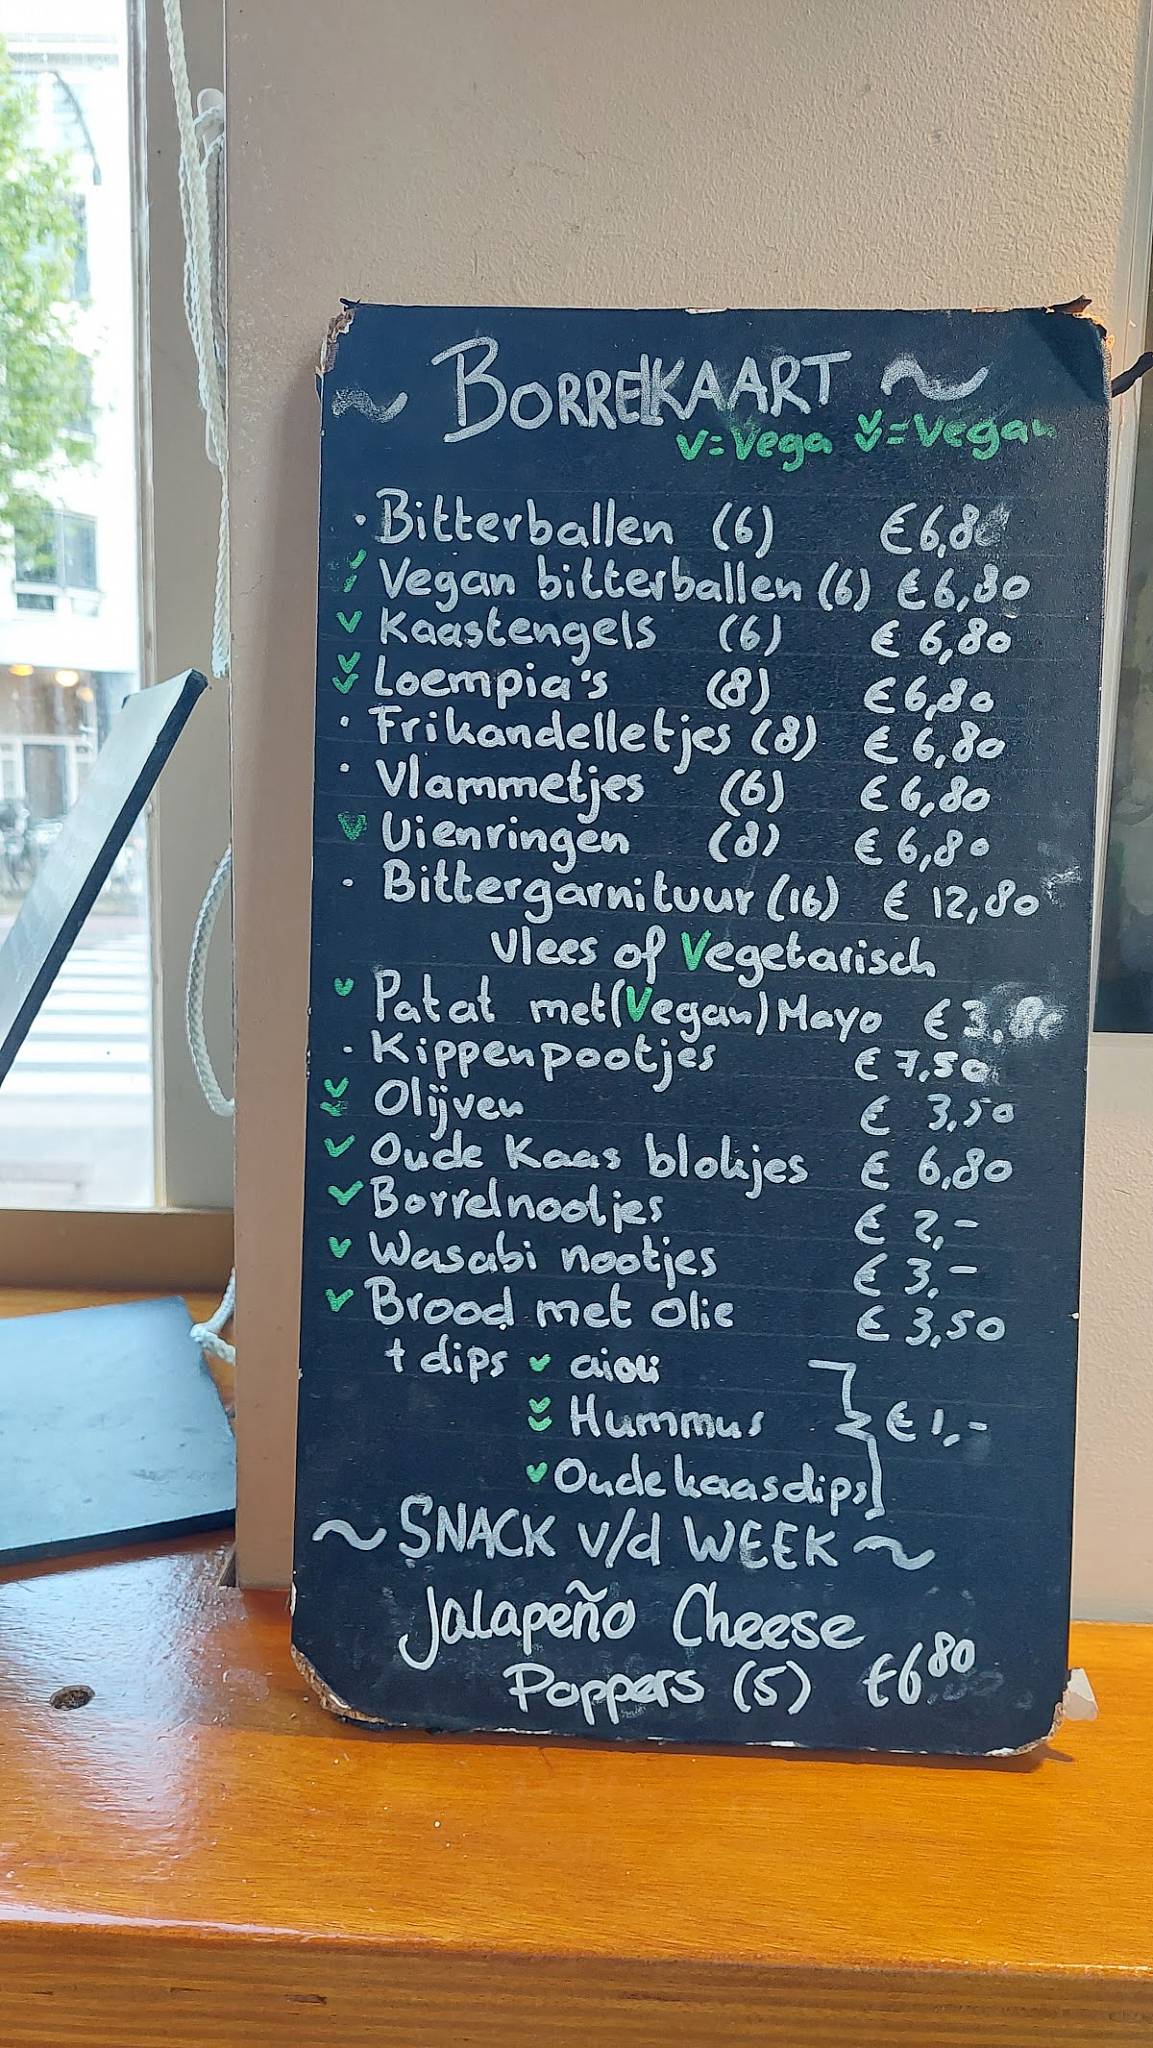 ~ BORRELKAART ~
v=Vega v̌=Vegan
· Bitterballen (6) €6,80
v̌ Vegan bitterballen (6) €6,80
v Kaastengels (6) €6,80
v̌ Loempia's (8) €6,80
· Frikandelletjes (8) €6,80
· Vlammetjes (6) €6,80
v Uienringen (8) €6,80
· Bittergarnituur (16) €12,80
Vlees of Vegetarisch
v Patat met (Vegan) Mayo €3,80
· Kippenpootjes €7,50
v̌ Olijven €3,50
v Oude Kaas blokjes €6,80
v Borrelnootjes €2,-
v Wasabi nootjes €3,-
v Brood met olie €3,50
+ dips v aioli
v̌ Hummus €1,-
v Oude kaasdips
~ SNACK v/d WEEK ~
Jalapeño Cheese
Poppers (5) €6 80